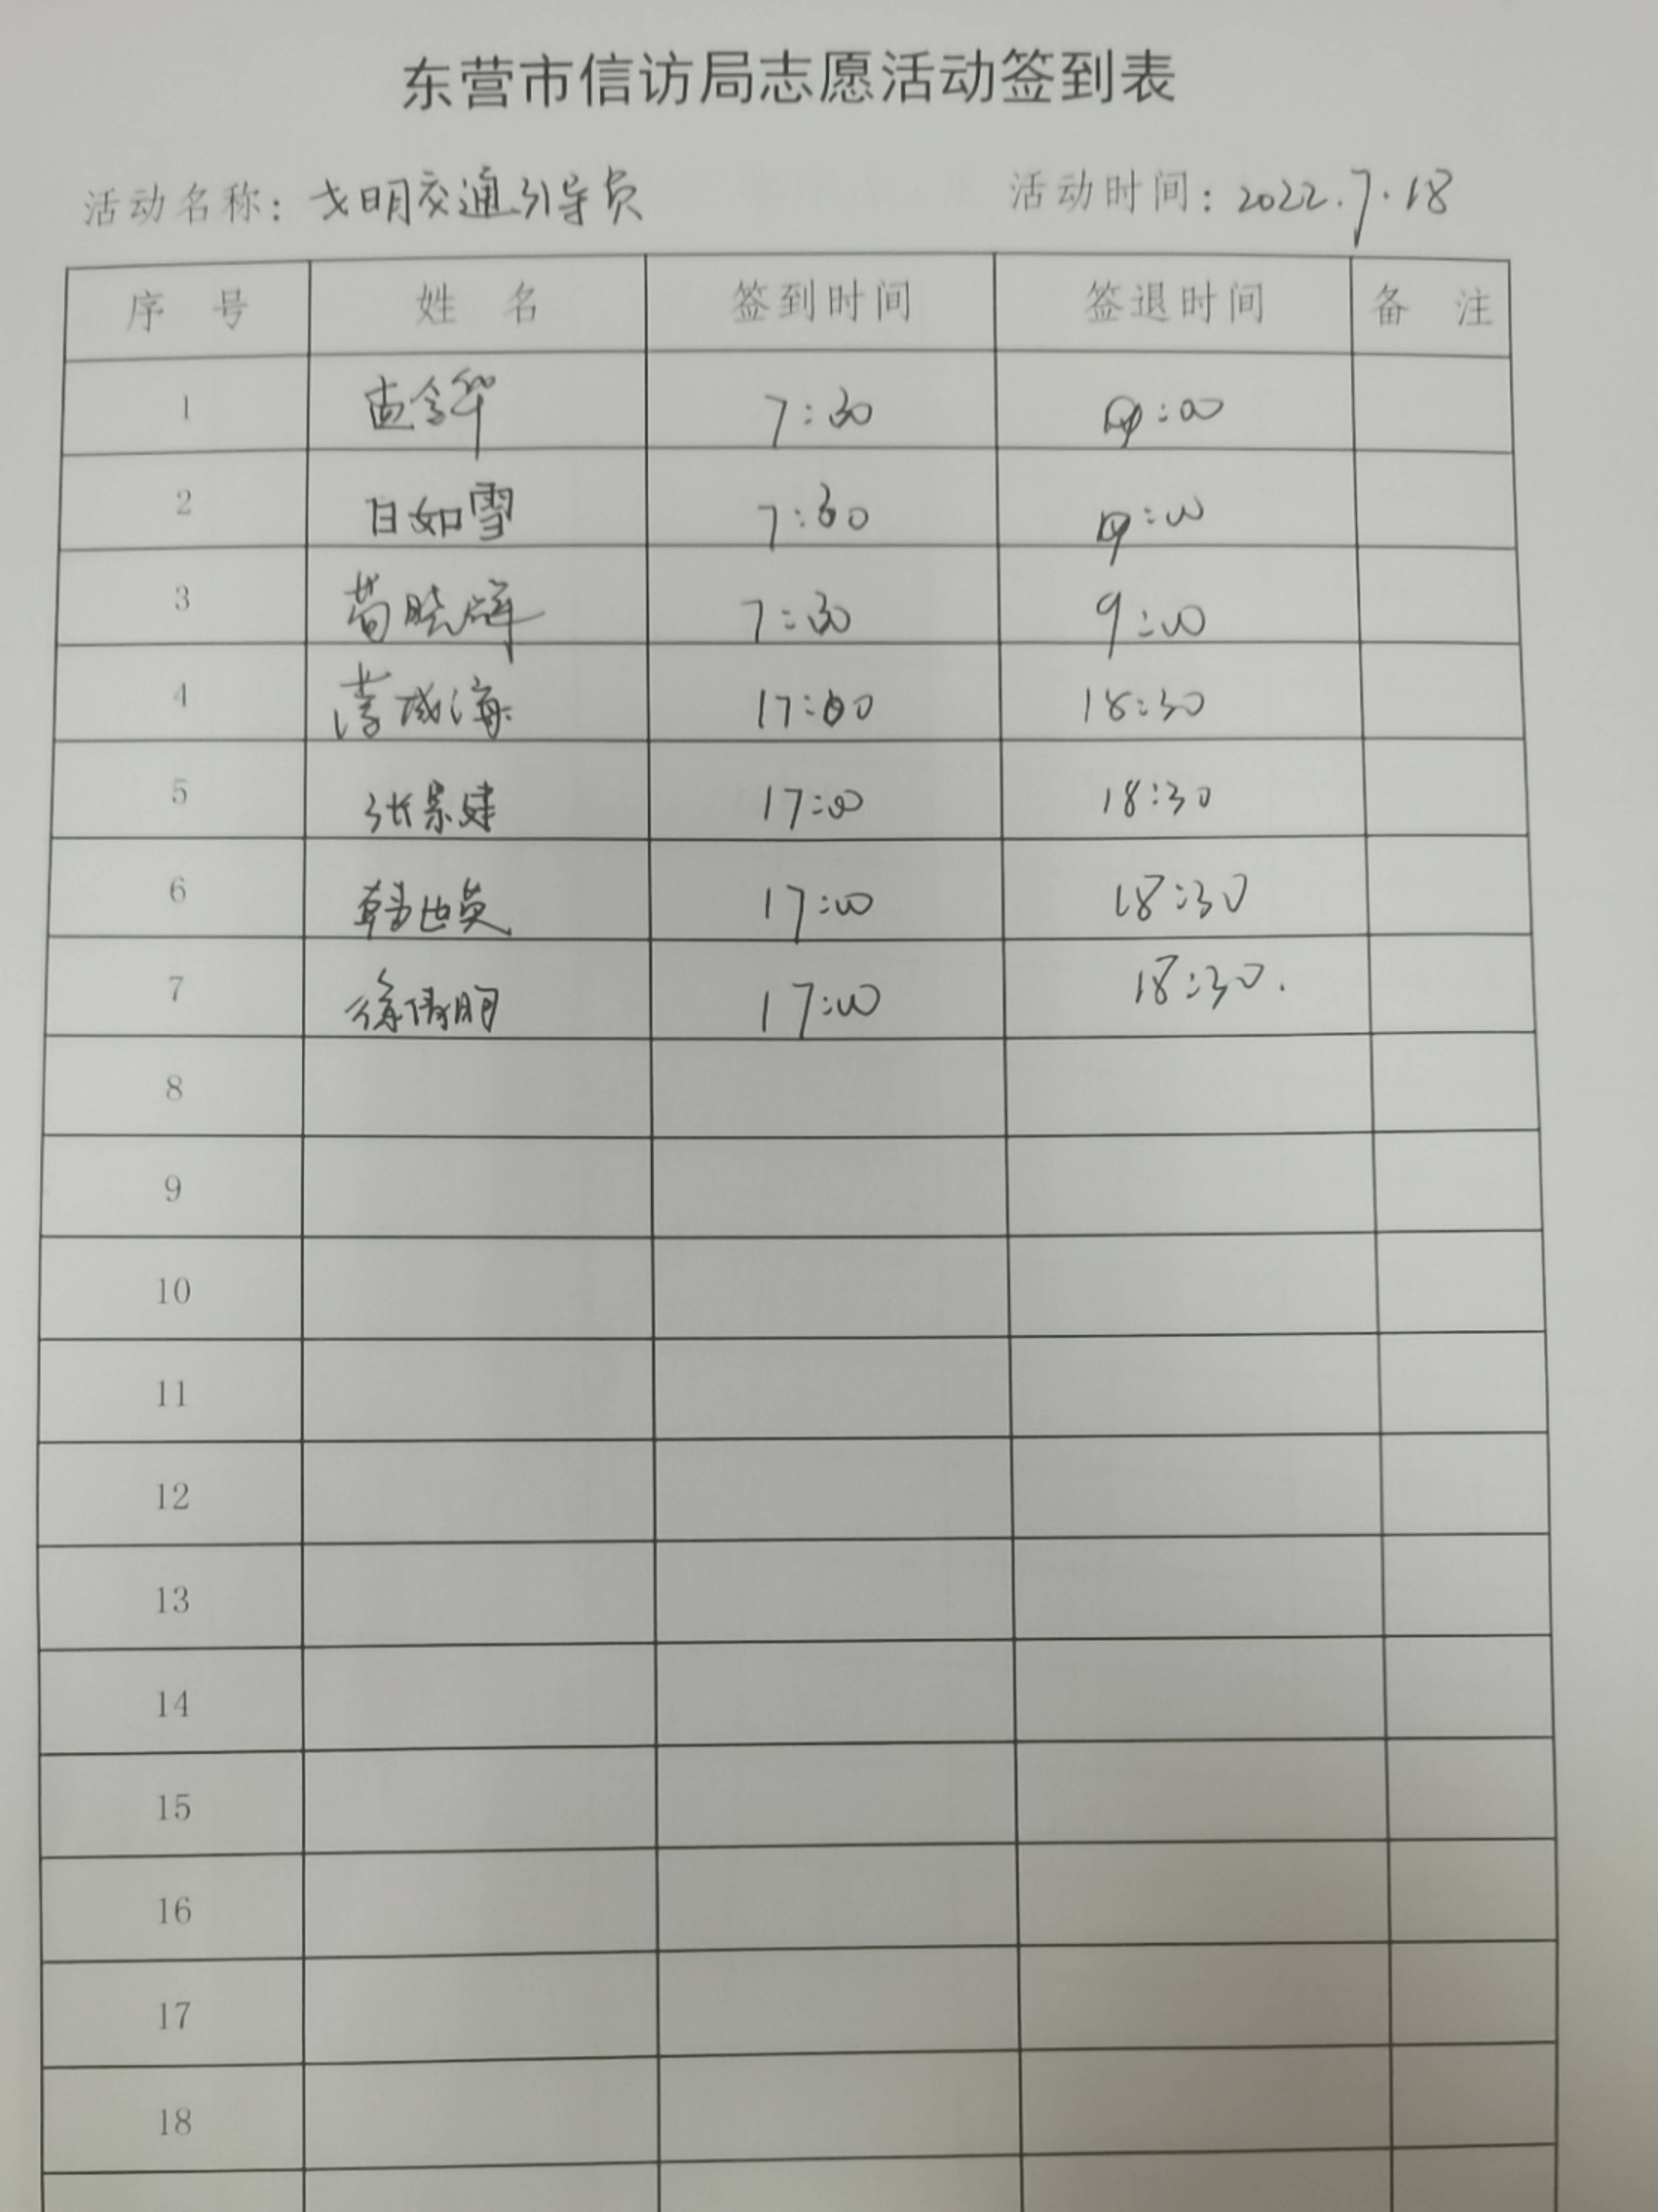 东营市信访局志愿活动签到表
活动名称：文明交通引导员 活动时间：2022.7.18
序 号 姓 名 签到时间 签退时间 备 注
1 孟令华 7:30 :00
2 白如雪 7:30 :00
3 苟晓辉 7:30 9:00
4 李威海 17:00 18:30
5 张景建 17:00 18:30
6 韩世英 17:00 18:30
7 徐倩明 17:00 18:30.
8
9
10
11
12
13
14
15
16
17
18